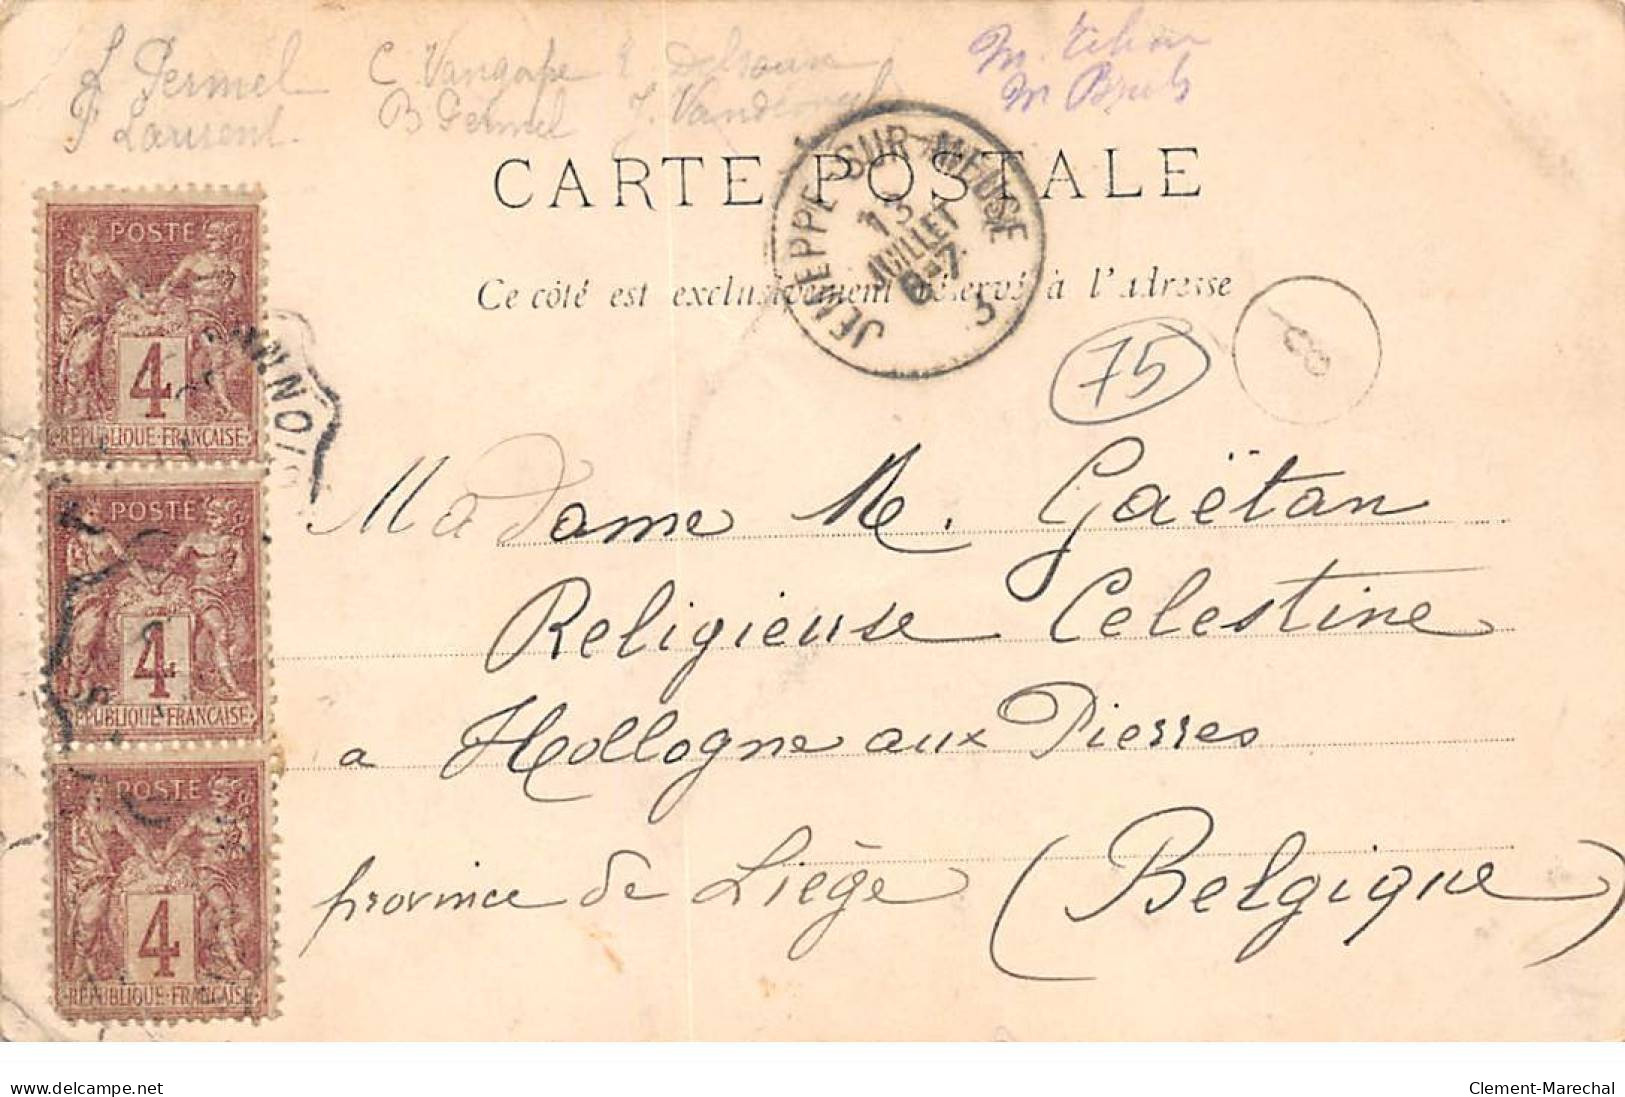 L Permel
C. Vangorpe
F Laurent.
B Germel
J.
M.
M
CARTE POSTALE
Ce côté est exclusivement réservé à l'adresse
JEMEPPE-SUR-MEUSE
13
JUILLET
6-7
POSTE
4
REPUBLIQUE-FRANÇAISE
POSTE
4
REPUBLIQUE-FRANÇAISE
POSTE
4
REPUBLIQUE-FRANÇAISE
75
8
Madame M. Gaëtan
Religieuse Celestine
a Hollogne aux Pierres
province de Liége (Belgique)
www.delcampe.net
Clement-Marechal